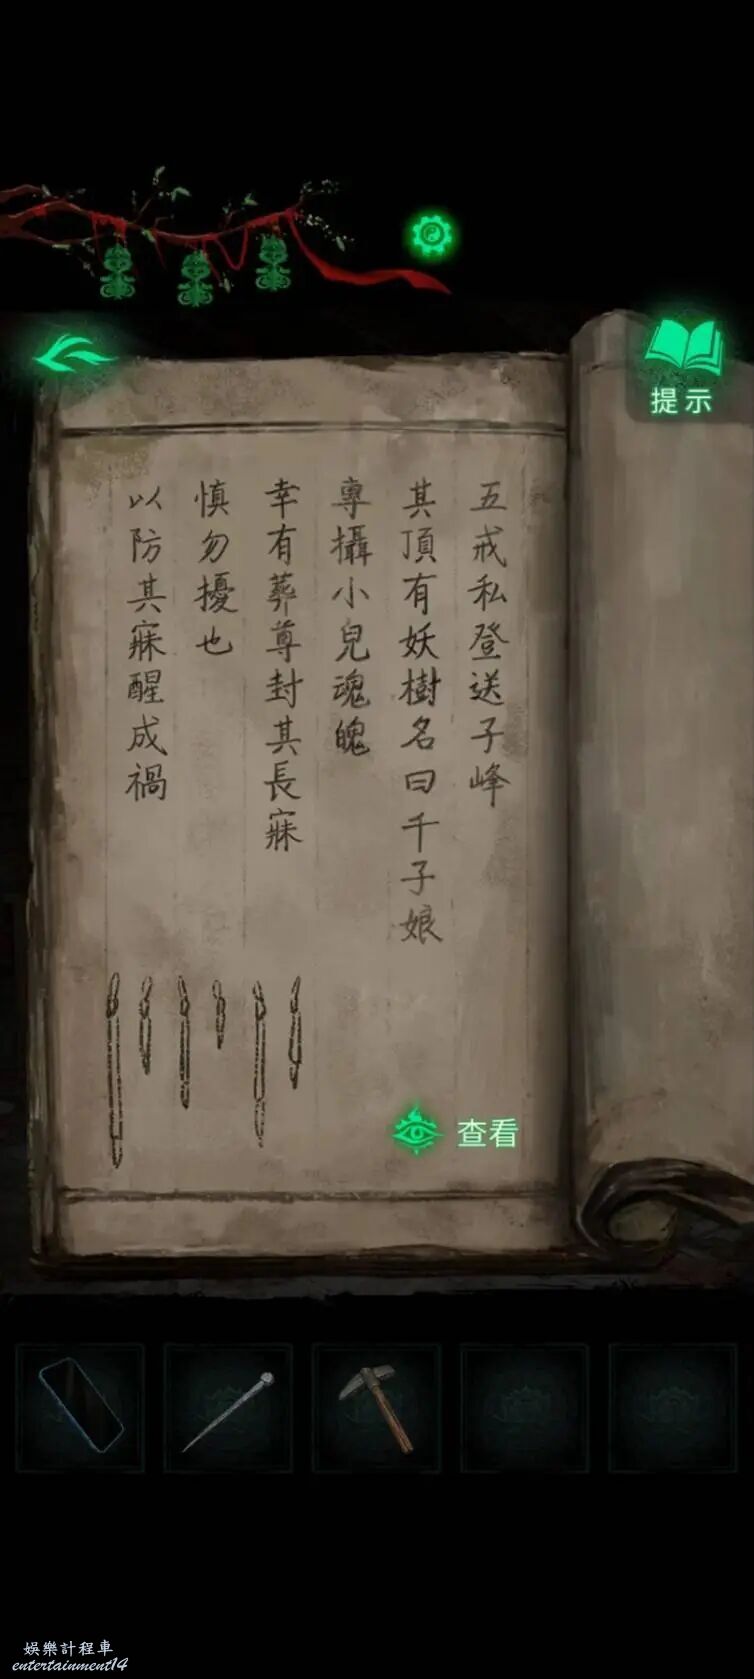 提示
五戒私登送子峰
其頂有妖樹名曰千子娘
專攝小兒魂魄
幸有葬尊封其長寐
慎勿擾也
以防其寐醒成禍
查看
娛樂計程車
entertainment14